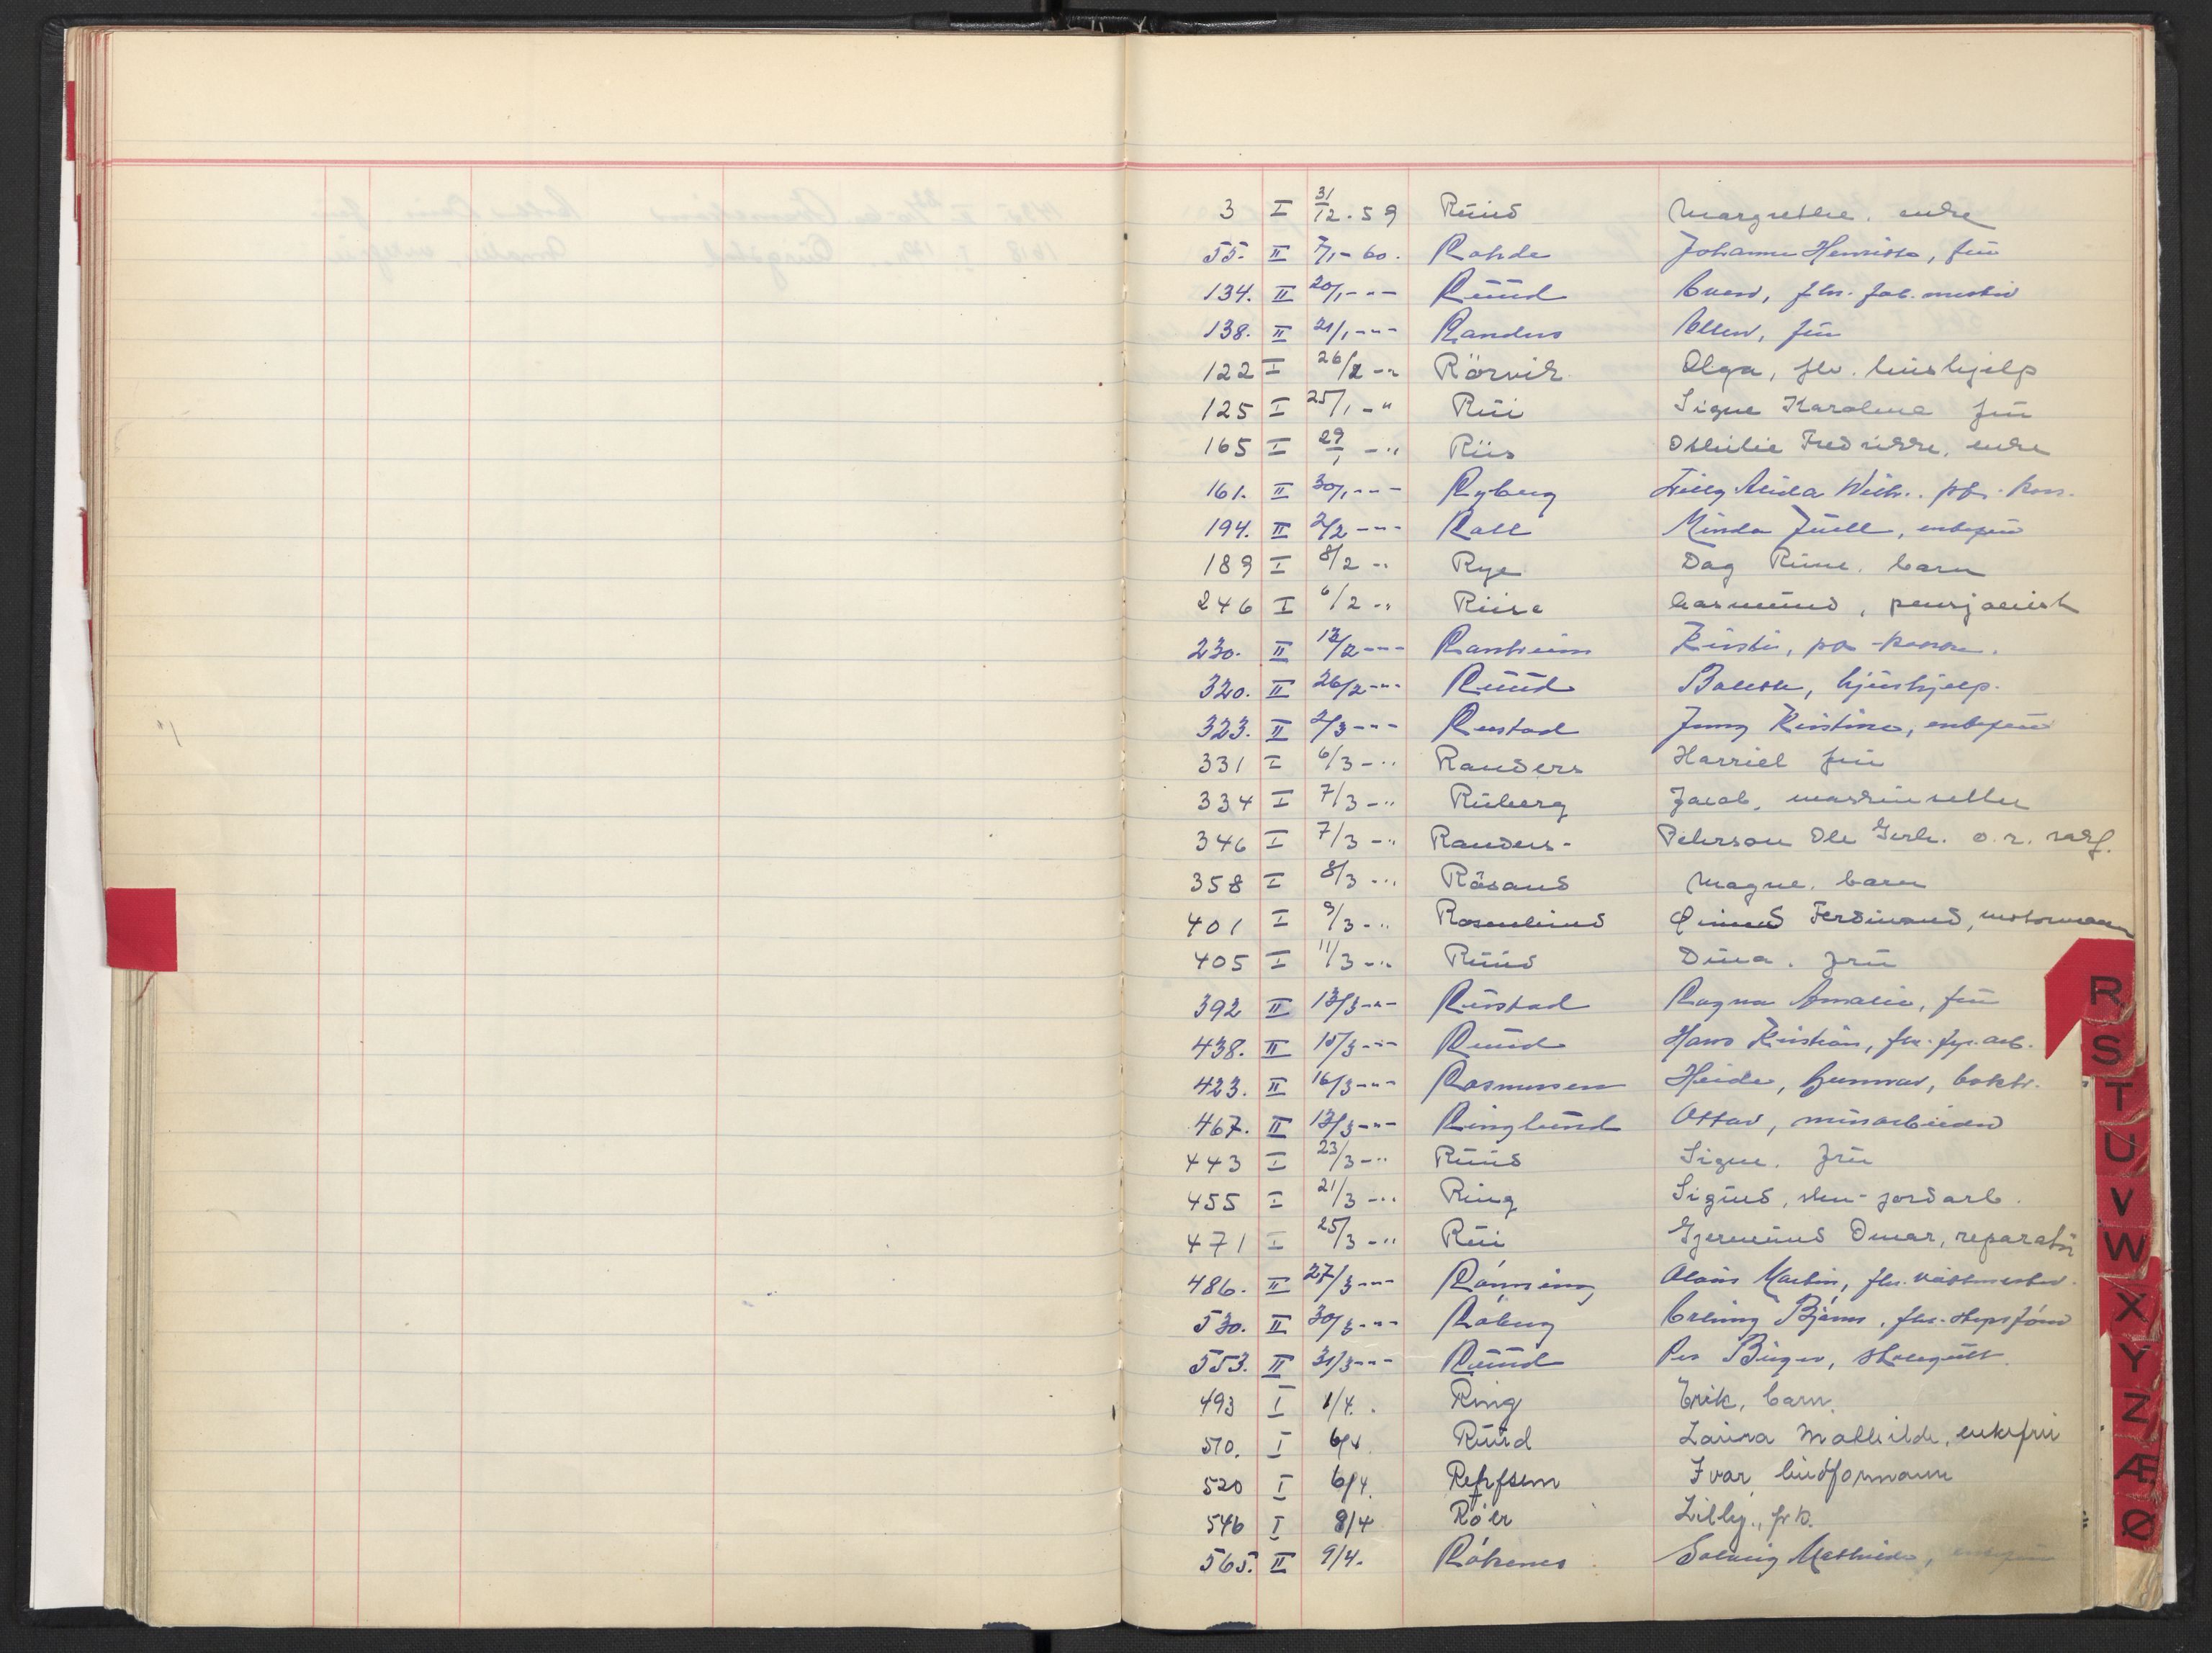 3 I 31/12.59 Ruud Margrethe. enke
55. II 7/1-60. Rohde Johanne Henriette, fru
134. II 20/1-"- Ruud Einar, fhv. fab. mester
138. II 21/1-"- Randers Ellen, fru
122 I 26/2-" Rörvik Olga, fhv. hushjelp
125 I 25/1-" Rui Signe Karoline fru
165 I 29/1-" Riis Othilie Fredrikke, enke
161. II 30/1-"- Ryberg Alida
194. II 2/2-"- Roll Minda Juell, enkefru
189 I 8/2-" Rye Dag Rune. barn
246 I 6/2-" Riise Aasmund, pensjonist
230. II 13/2-"- Ranheim Kirsti,
320. II 26/2-"- Ruud Bolette, hjushjelp.
323. II 2/3-"- Rustad Jenny Kristine, enkefru
331 I 6/3-" Randers Harriet fru
334 I 7/3-" Ruberg Jacob, maskinsetter
346 I 7/3-" Randers- Peterson Ole Gerh. o.r. sakf.
358 I 8/3-" Råsand Magne. barn
401 I 9/3-" Rosenlund Ferdinand, motormann
405 I 11/3-" Ruud Dina. fru
392 II 13/3-"- Rustad Ragna Amalie, fru
438. II 15/3-"- Ruud Hans Kristian, fhv. fyr. arb.
423. II 16/3-"- Rasmussen Heide, Gunnar, boktr.
467. II 13/3-"- Ringlund Ottar, murarbeider
443 I 23/3-" Ruud Signe. fru
455 I 21/3-" Ring Sigurd, sten-jordarb.
471 I 25/3-" Rui Gjermund Omar, reparatör
486. II 27/3-"- Rønning Martin, fhv. vaktmester.
530. II 30/3-"- Råberg Erling Bjarne, fhv. skipsfører
553. II 31/3-"- Ruud Per Birger, skolegutt.
493 I 1/4. Ring Erik, barn.
510. I 6/4. Ruud Laura Mathilde, enkefru
520 I 6/4. Ivar, budformann
546 I 8/4 Röer Lilly., frk.
565. II 9/4. Røkenes Solveig Mathilde, enkefru
R
S
T
U
V
W
X
Y
Z
Æ
Ø